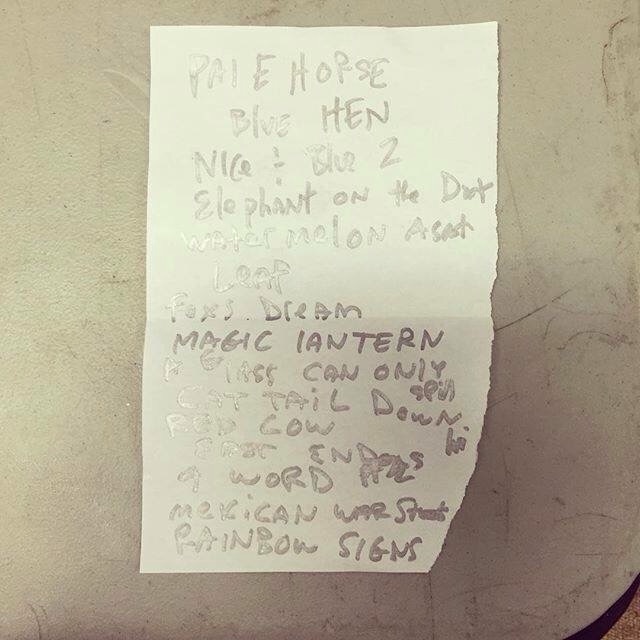 PALE HORSE
Blue HEN
Nice + Blue 2
Elephant on the Dot
watermelon Ascot
Leap
Foxs Dream
MAGIC LANTERN
A GLASS CAN ONLY
spill
CATTAIL DOWN
RED COW
EAST ENDERS
9 WORD
MEXICAN WAR Street
RAINBOW SIGNS